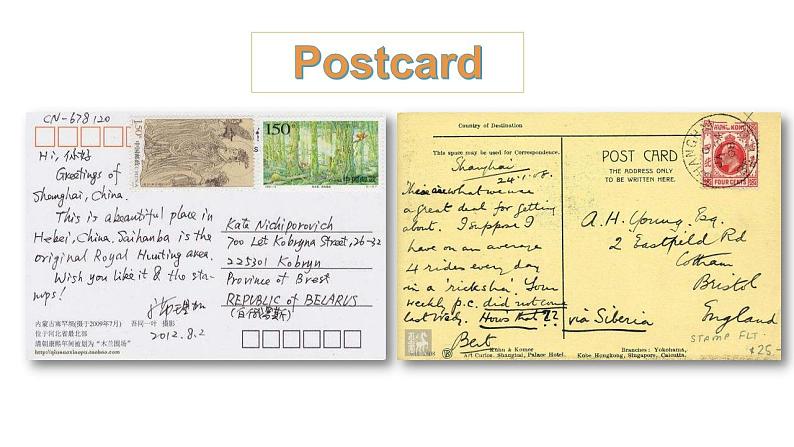 Postcard
CN-678120
Hi, 你好
Greetings of
Shanghai, China.
This is a beautiful place in
Hebei, China. Saihanba is the
original Royal Hunting area.
Wish you like it & the sta-
mps!
2012.8.2
内蒙古塞罕坝(摄于2009年7月) 吾同一叶 摄影
位于河北省最北部
清朝康熙年间被划为“木兰围场”
1.50
150
中国邮政
Kata Nichiporovich
700 Let Kobryna Street, 26-32
225301 Kobryn
Province of Brest
REPUBLIC of BELARUS
(白俄罗斯)
Country of Destination
This space may be used for Correspondence.
Shanghai
24.1.08.
These are what we use
a great deal for getting
about. I suppose I
have on an average
4 rides every day
in a 'ricksha'. Your
weekly p.c. did not come
last week. How's that??
via Siberia
Bert
POST CARD
THE ADDRESS ONLY
TO BE WRITTEN HERE.
HONG KONG
FOUR CENTS
SHANGHAI
A. H. Young, Esq.
2 Eastfield Rd
Cotham
Bristol
England
STAMP FLT.
$25-
Kuhn & Komor
Art Curios. Shanghai, Palace Hotel.
Branches: Yokohama,
Kobe Hongkong, Singapore, Calcutta.